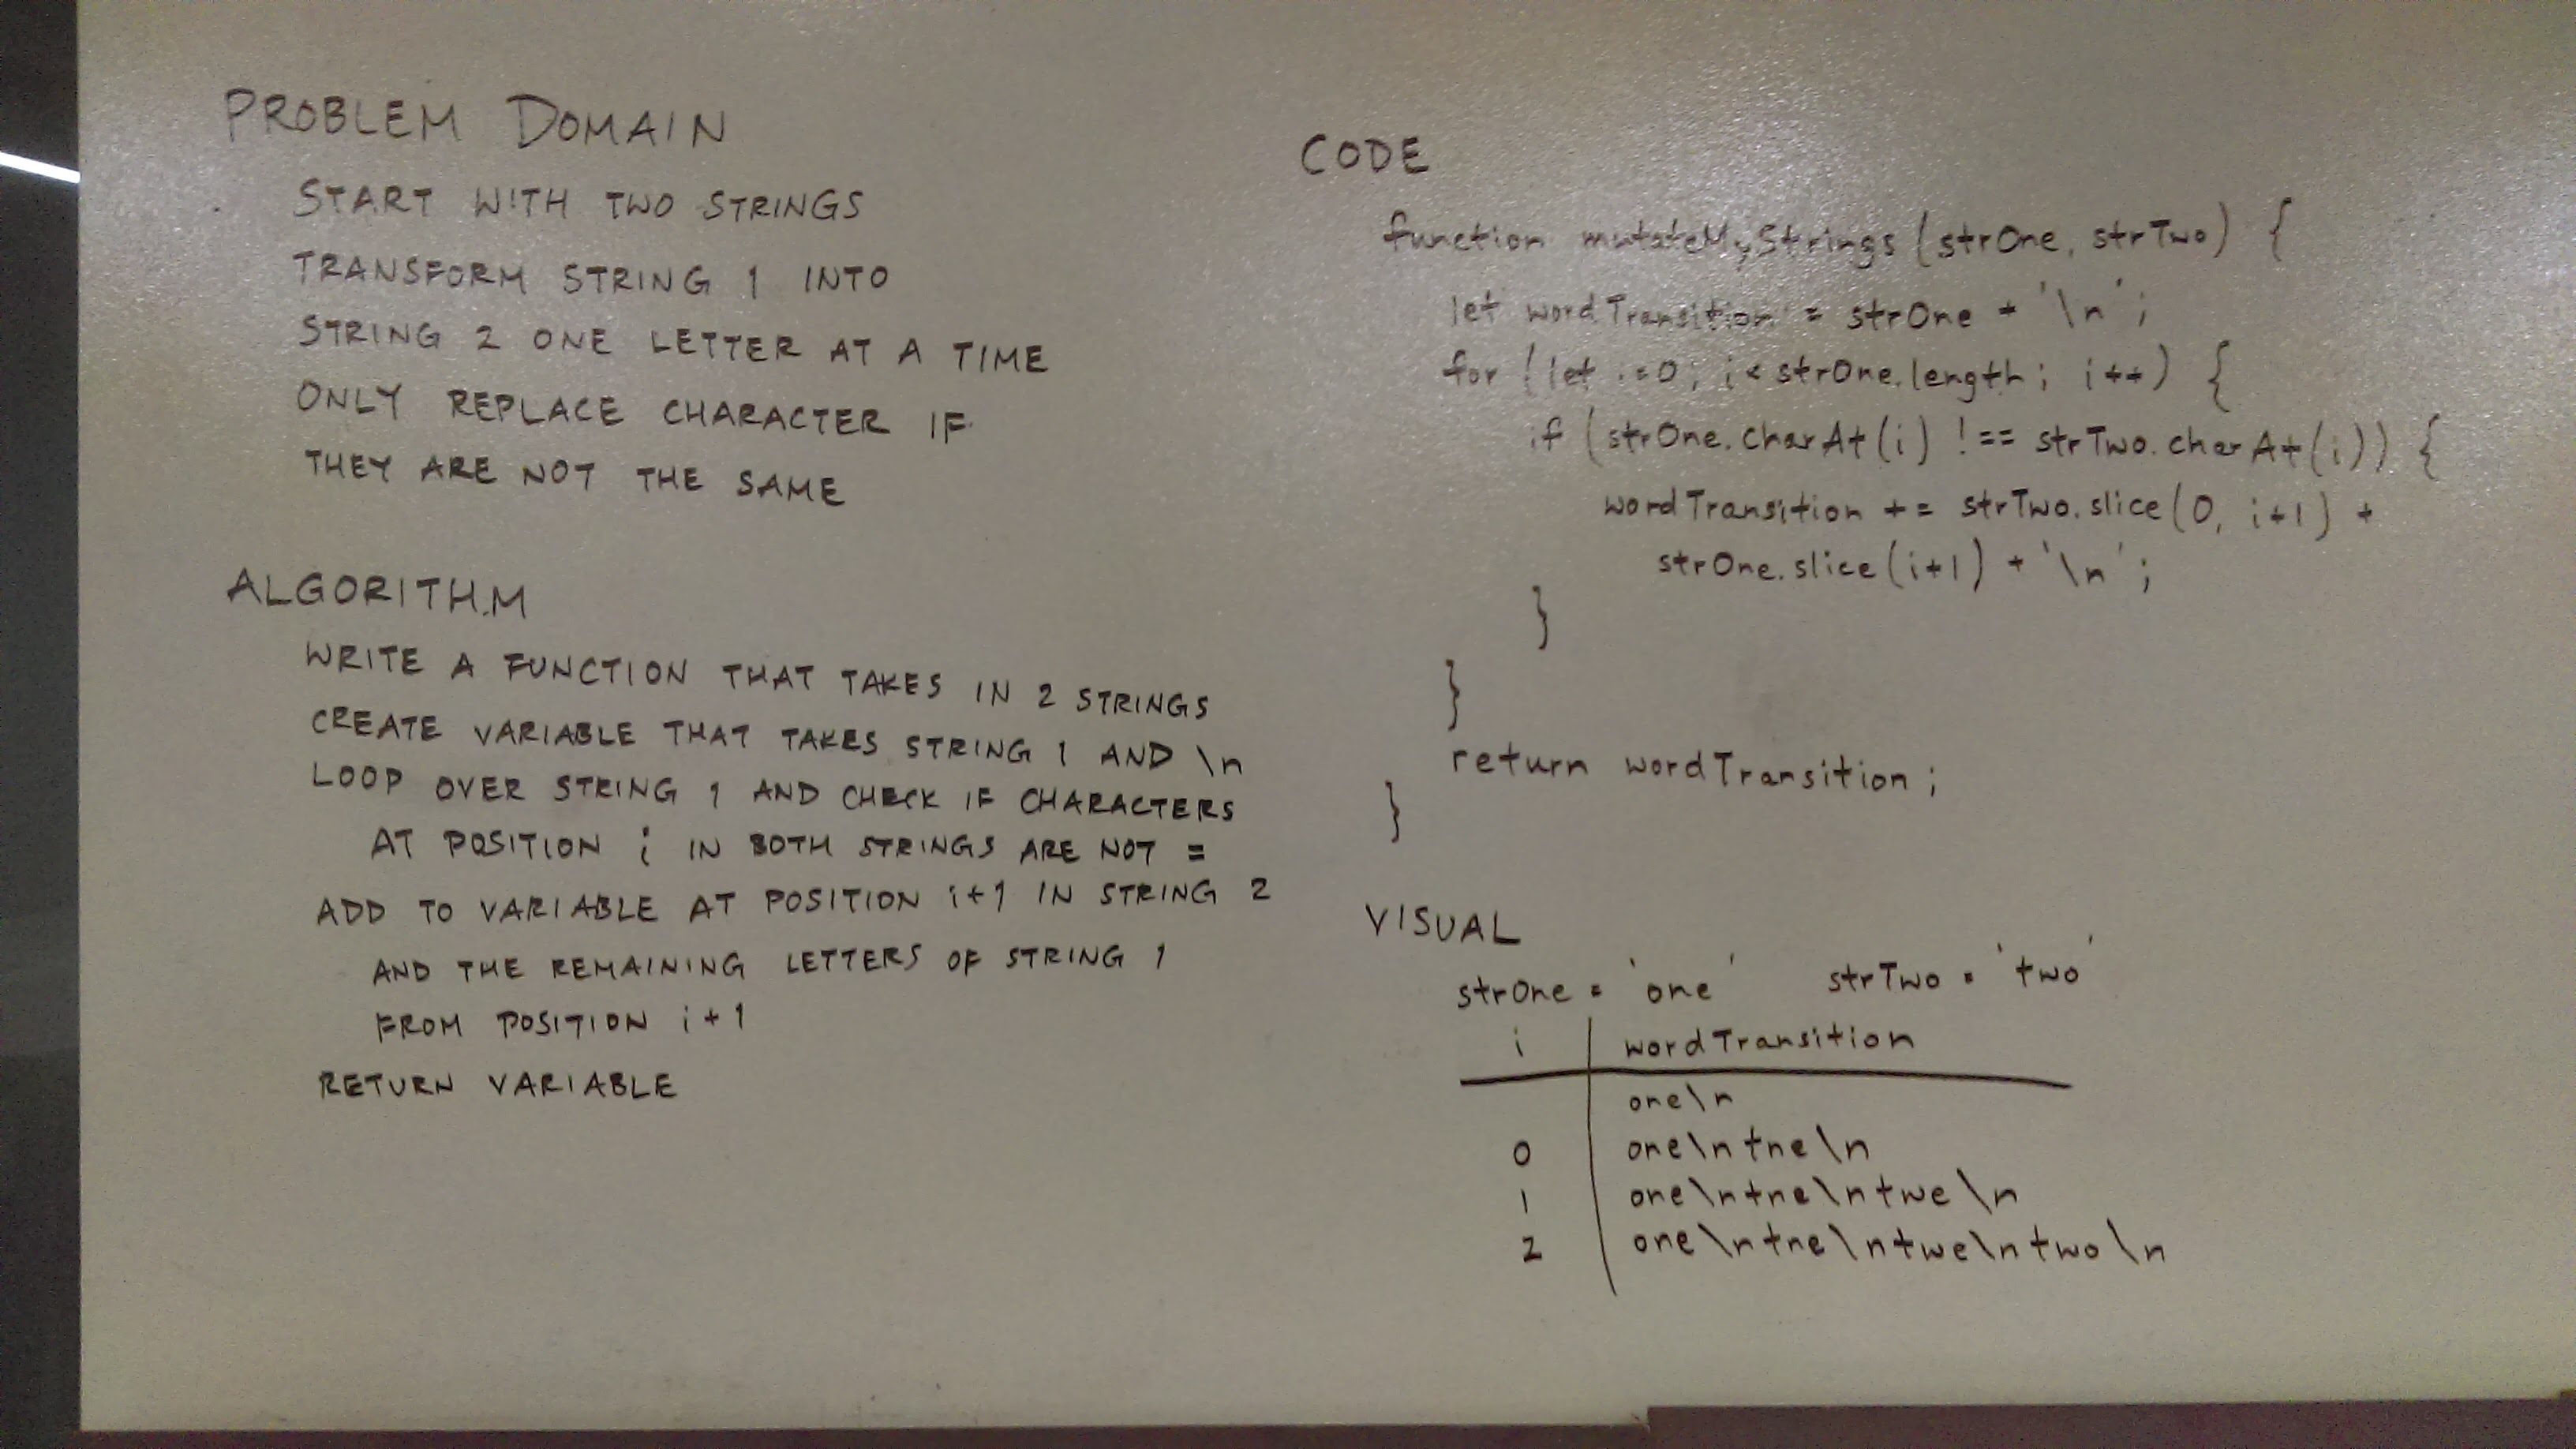 PROBLEM DOMAIN
START WITH TWO STRINGS
TRANSFORM STRING 1 INTO
STRING 2 ONE LETTER AT A TIME
ONLY REPLACE CHARACTER IF
THEY ARE NOT THE SAME
ALGORITHM
WRITE A FUNCTION THAT TAKES IN 2 STRINGS
CREATE VARIABLE THAT TAKES STRING 1 AND \n
LOOP OVER STRING 1 AND CHECK IF CHARACTERS
AT POSITION i IN BOTH STRINGS ARE NOT =
ADD TO VARIABLE AT POSITION i+1 IN STRING 2
AND THE REMAINING LETTERS OF STRING 1
FROM POSITION i+1
RETURN VARIABLE
CODE
function mutateMyStrings (strOne, strTwo) {
let wordTransition = strOne + '\n';
for (let i=0; i < strOne.length; i++) {
if (strOne.charAt(i) !== strTwo.charAt(i)) {
wordTransition += strTwo.slice(0, i+1) +
strOne.slice(i+1) + '\n';
}
}
return wordTransition;
}
VISUAL
strOne = 'one' strTwo = 'two'
i wordTransition
one\n
0 one\ntne\n
1 one\ntne\ntwe\n
2 one\ntne\ntwe\ntwo\n